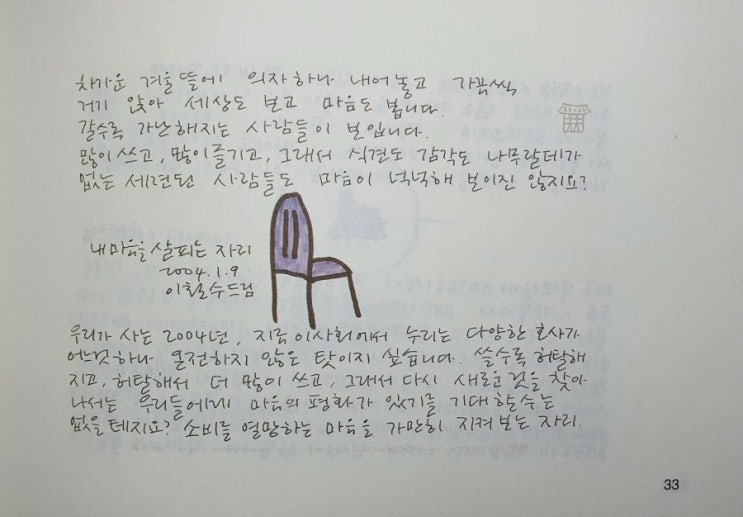 차가운 겨울 뜰에 의자하나 내어놓고 가끔씩
거기 앉아 세상도 보고 마음도 봅니다.
갈수록 가난해지는 사람들이 보입니다.
많이 쓰고, 많이 즐기고, 그래서 식견도 감각도 나무랄데가
없는 세련된 사람들도 마음이 넉넉해 보이진 않지요?
내마음을 살피는 자리
2004.1.9
이철수드림
우리가 사는 2004년, 지금 이사회에서 누리는 다양한 호사가
어느것하나 온전하지 않은 탓이지 싶습니다. 쓸수록 허탈해
지고, 허탈해서 더 많이 쓰고, 그래서 다시 새로운 것을 찾아
나서는 우리들에게 마음의 평화가 있기를 기대할수는
없을테지요? 소비를 열망하는 마음을 가만히 지켜보는 자리.
33